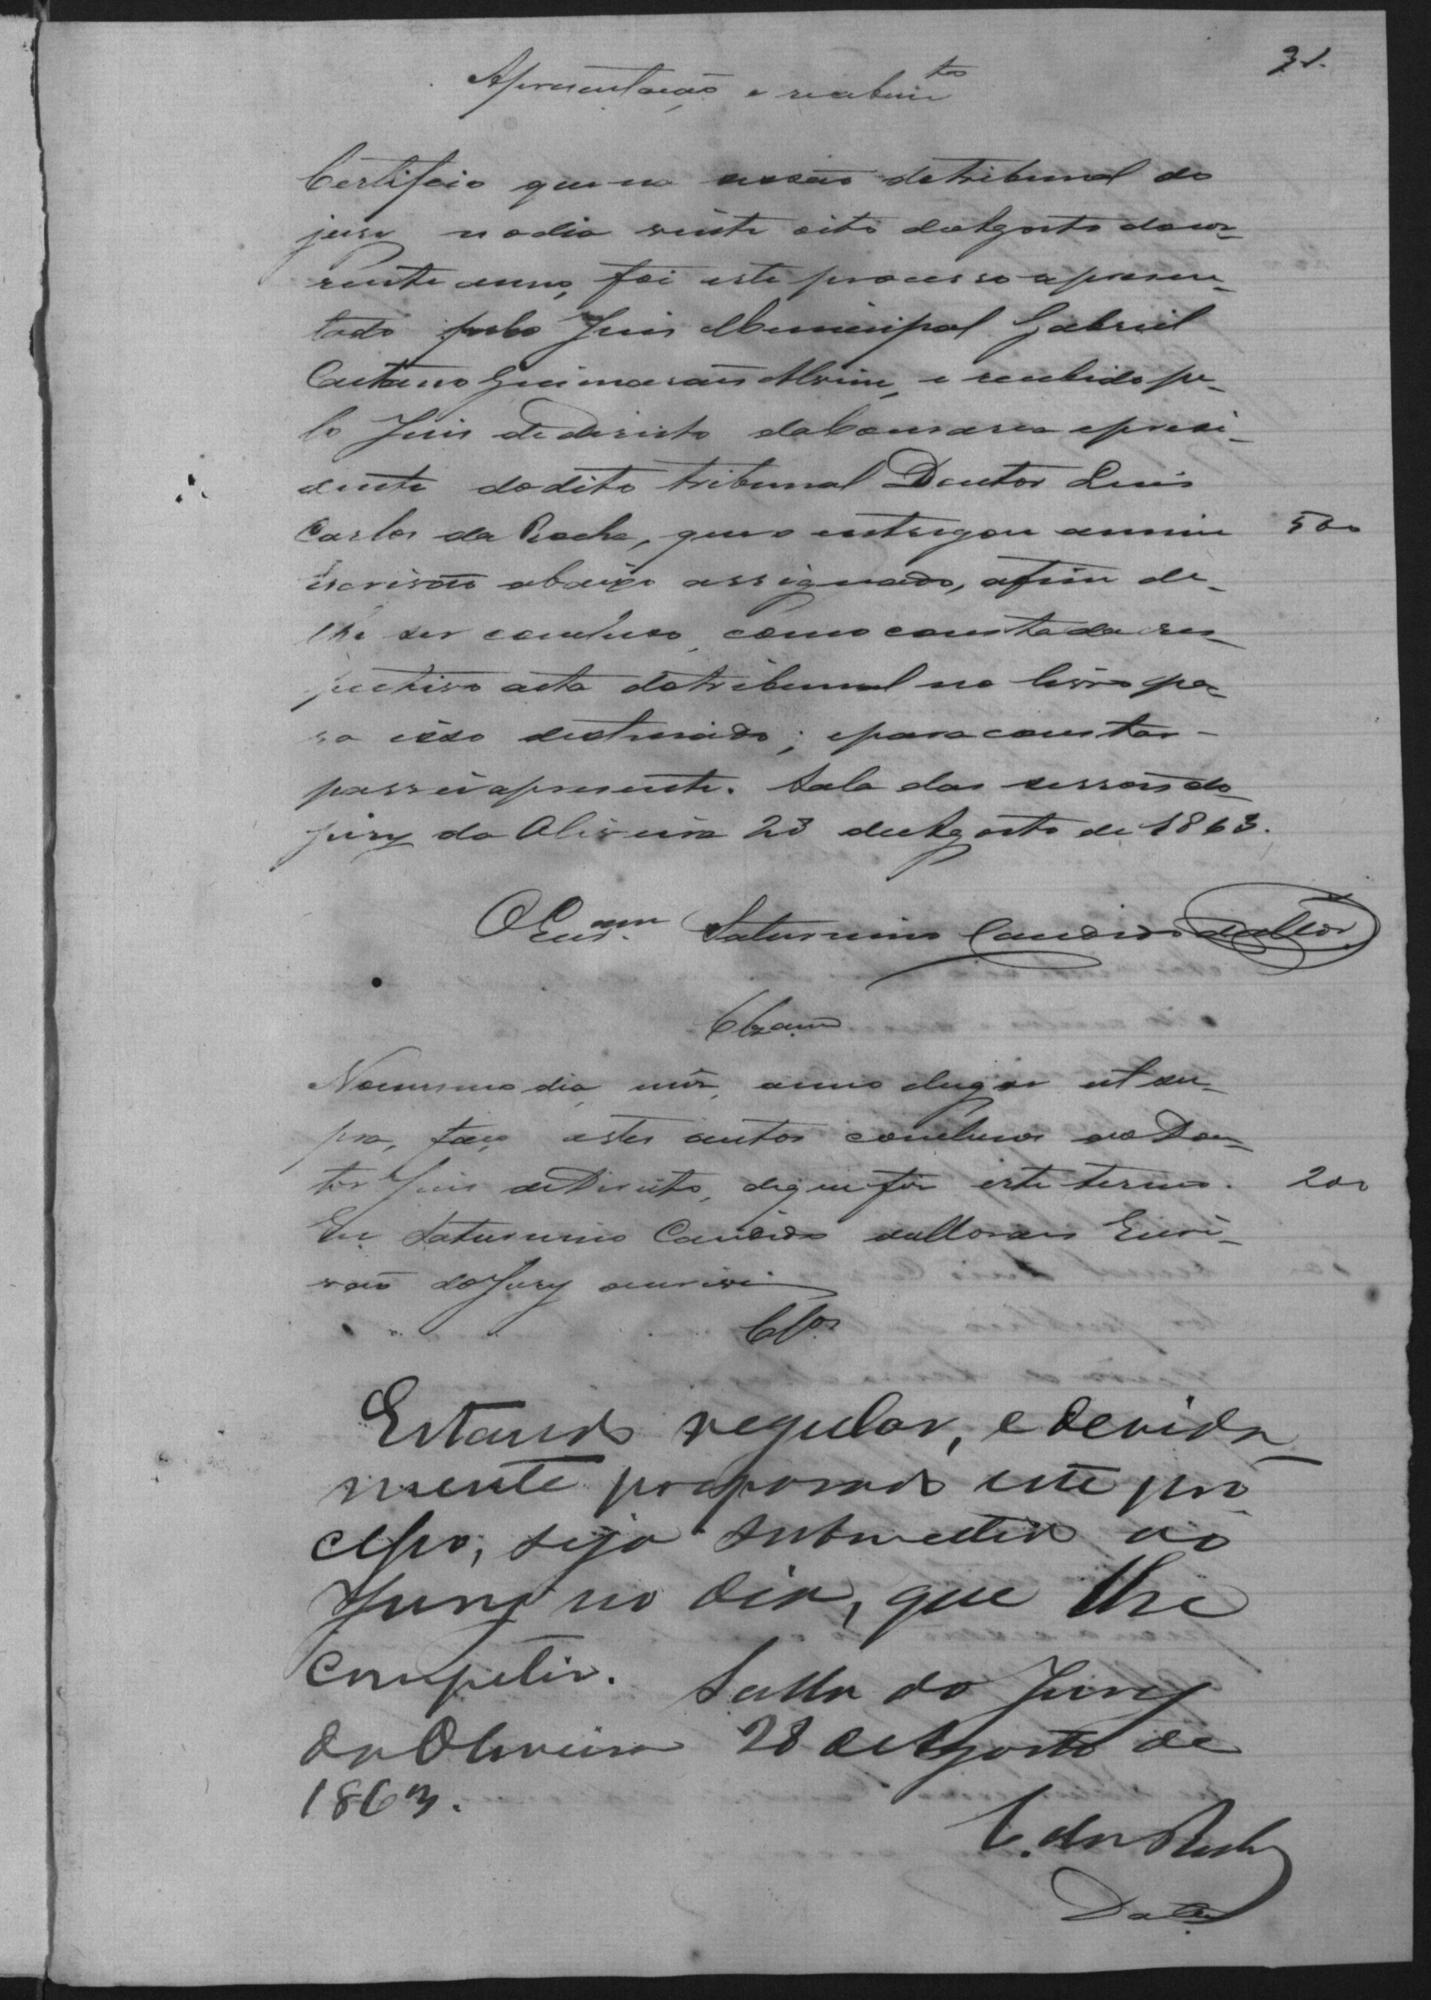 31.
Apresentação e recebim.tos
Certifico que na sessão do tribunal do
jury no dia vinte oito de Agosto do cor-
rente anno, foi este processo apresen-
tado pelo Juis Municipal Gabriel
Caetano Guimarães Alvim, e recebido pe-
lo Juis de direito da Comarca e presi-
dente do dito tribunal Doutor Luis
Carlos da Rocha, que o entregou a mim 500
escrivão abaixo assignado, afim de-
lhe ser concluso, como consta da res-
pectiva acta do tribunal no livro pa-
ra isso destinado; e para constar-
passei a presente. Sala das sessões do
jury da Oliveira 28 de Agosto de 1863.
O Escr.am Saturnino Candido
Clzam
No mesmo dia, mês, anno e lugar ut su-
pra, faço estes autos conclusos ao Dou-
tor Juis de Direito, de que fis este termo. 200
Eu Saturnino Candido de Moraes Escri-
vão do Jury escrevi
Clos
Estando regular, e devida-
mente preparado este pro-
cesso, seja submettido ao
Jury no dia, que lhe
competir. Salla do Jury
da Oliveira 28 de Agosto de
1863.
C. da Rocha
Data